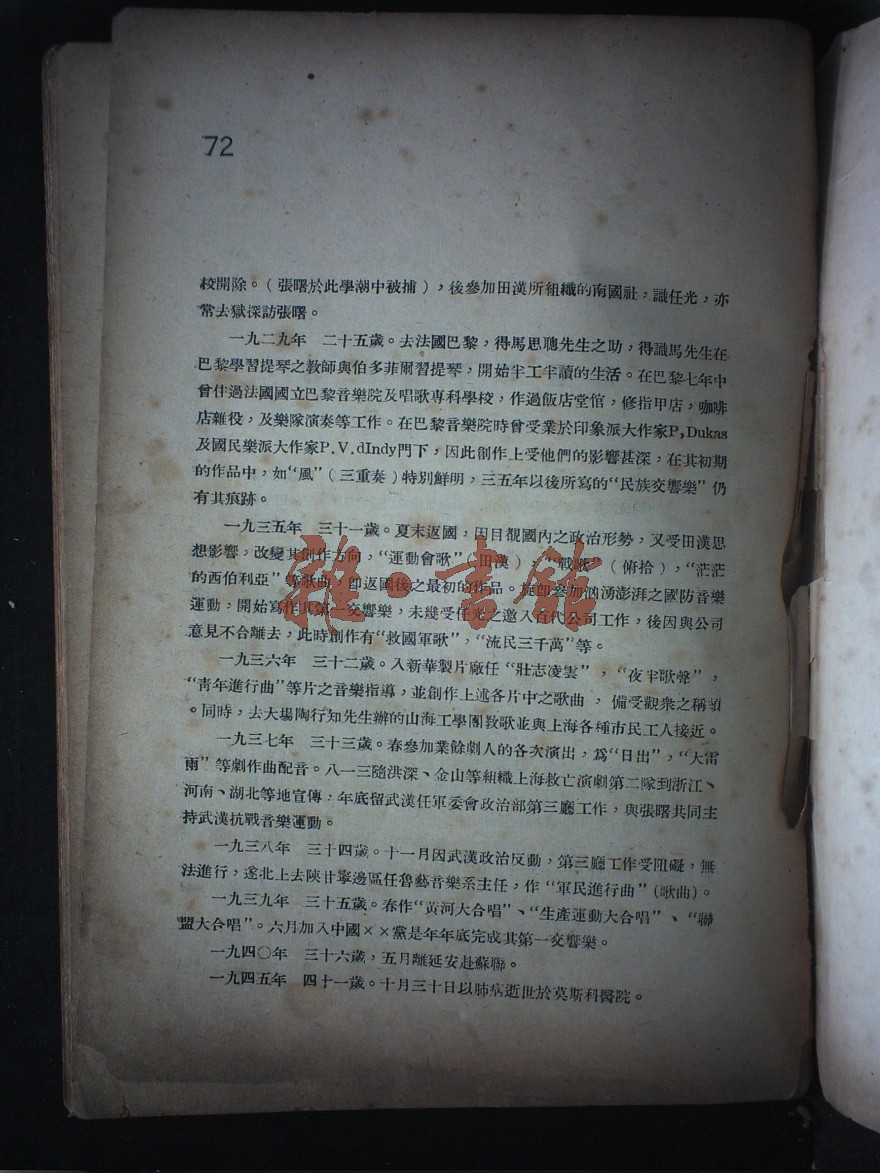 72
校開除。(張曙於此學潮中被捕),後參加田漢所組織的南國社,識任光,亦
常去獄探訪張曙。
一九二九年 二十五歲。去法國巴黎,得馬思聰先生之助,得識馬先生在
巴黎學習提琴之教師與伯多菲爾習提琴,開始半工半讀的生活。在巴黎七年中
曾住過法國國立巴黎音樂院及唱歌専科學校,作過飯店堂倌,修指甲店,咖啡
店雜役,及樂隊演奏等工作。在巴黎音樂院時曾受業於印象派大作家P,Dukas
及國民樂派大作家P.V.dIndy門下,因此創作上受他們的影響甚深,在其初期
的作品中,如“風”(三重奏)特別鮮明,三五年以後所寫的“民族交響樂”仍
有其痕跡。
一九三五年 三十一歲。夏末返國,因目覩國內之政治形勢,又受田漢思
想影響,改變其創作方向,“運動會歌”(田漢),“戰歌”(俯拾),“茫茫
的西伯利亞”等歌曲,卽返國後之最初的作品。旋卽參加汹湧澎湃之國防音樂
運動;開始寫作其第一交響樂,未幾受任光之邀入百代公司工作,後因與公司
意見不合離去,此時創作有“救國軍歌”,“流民三千萬”等。
一九三六年 三十二歲。入新華製片廠任“壯志凌雲”,“夜半歌聲”,
“靑年進行曲”等片之音樂指導,並創作上述各片中之歌曲,備受觀衆之稱頌
。同時,去大場陶行知先生辦的山海工學團敎歌並與上海各種市民工人接近。
一九三七年 三十三歲。春參加業餘劇人的各次演出,爲“日出”,“大雷
雨”等劇作曲配音。八一三隨洪深、金山等組織上海救亡演劇第二隊到浙江、
河南、湖北等地宣傳;年底留武漢任軍委會政治部第三廳工作,與張曙共同主
持武漢抗戰音樂運動。
一九三八年 三十四歲。十一月因武漢政治反動,第三廳工作受阻礙,無
法進行,遂北上去陝甘寧邊區任魯藝音樂系主任,作“軍民進行曲”(歌曲)。
一九三九年 三十五歲。春作“黃河大合唱”、“生產運動大合唱”、“聯
盟大合唱”。六月加入中國××黨是年年底完成其第一交響樂。
一九四〇年 三十六歲,五月離延安赴蘇聯。
一九四五年 四十一歲。十月三十日以肺病逝世於莫斯科醫院。
雜·書館